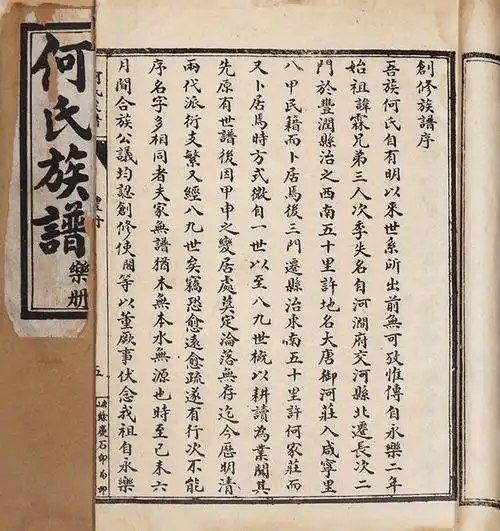 創修族譜序
吾族何氏自有明以來世系所出前無可攷惟傳自永樂二年
始祖諱霖兄弟三人次季失名自河澗府交河縣北遷長次二
門於豐潤縣治之西南五十里許地名大唐御河莊入咸寧里
八甲民籍而卜居焉後三門遷縣治東南五十里許何家莊而
又卜居焉時方式微自一世以至八九世概以耕讀為業聞其
先原有世譜後因甲申之變居處莫定淪落無存迄今歷明清
兩代派衍支繁又經八九世矣竊恐愈遠愈疏遂有行次不能
序名字多相同者夫家無譜猶木無本水無源也時至己未六
月間合族公議均認創修使閣等以董厥事伏念我祖自永樂
五
餘慶石印局印
何氏族譜
樂冊